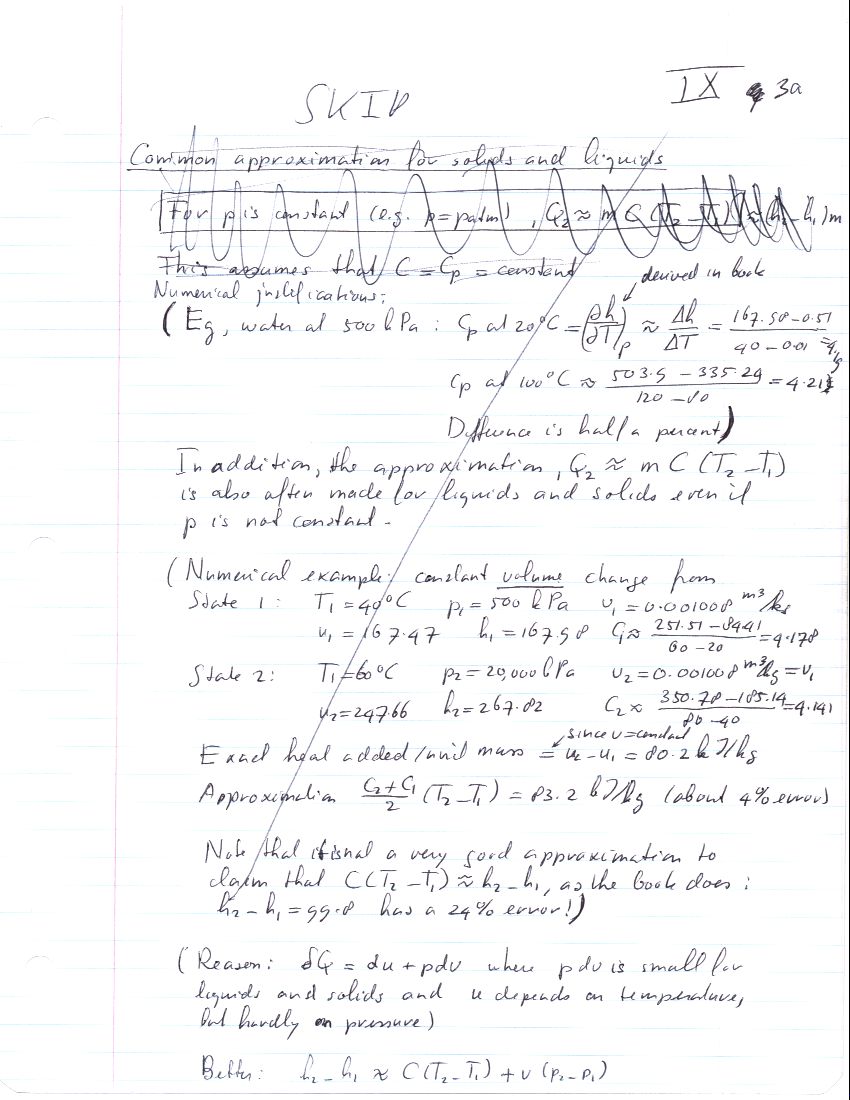 SKIP
IX 3a
Common approximation for solids and liquids
For p is constant (e.g. p = patm), Q₂ ≈ m C (T₂ - T₁) ≈ (h₂ - h₁) m
This assumes that C = Cp = constant
Numerical justifications:
derived in book
(Eg, water at 500 kPa : Cp at 20°C = (∂h/∂T)p ≈ Δh/ΔT = (167.58 - 0.51)/(40 - 0.01) =
Cp at 100°C ≈ (503.5 - 335.29)/(120 - 80) = 4.21
Difference is half a percent)
In addition, the approximation, Q₂ ≈ m C (T₂ - T₁)
is also often made for liquids and solids even if
p is not constant.
(Numerical example: constant volume change from
State 1: T₁ = 40°C p₁ = 500 kPa v₁ = 0.001008 m³/kg
u₁ = 167.47 h₁ = 167.98 C₁ ≈ (251.51 - 84.41)/(60 - 20) = 4.178
State 2: T₁ = 60°C p₂ = 20,000 kPa v₂ = 0.001008 m³/kg = v₁
u₂ = 247.66 h₂ = 267.82 C₂ ≈ (350.78 - 185.14)/(80 - 40) = 4.141
since v = constant
Exact heat added/unit mass = u₂ - u₁ = 80.2 kJ/kg
Approximation (C₂ + C₁)/2 (T₂ - T₁) = 83.2 kJ/kg (about 4% error)
Note that it is not a very good approximation to
claim that C(T₂ - T₁) ≈ h₂ - h₁, as the book does:
h₂ - h₁ = 99.8 has a 24% error!)
(Reason: δQ = du + pdv where pdv is small for
liquids and solids and u depends on temperature,
but hardly on pressure)
Better: h₂ - h₁ ≈ C(T₂ - T₁) + v(p₂ - p₁)